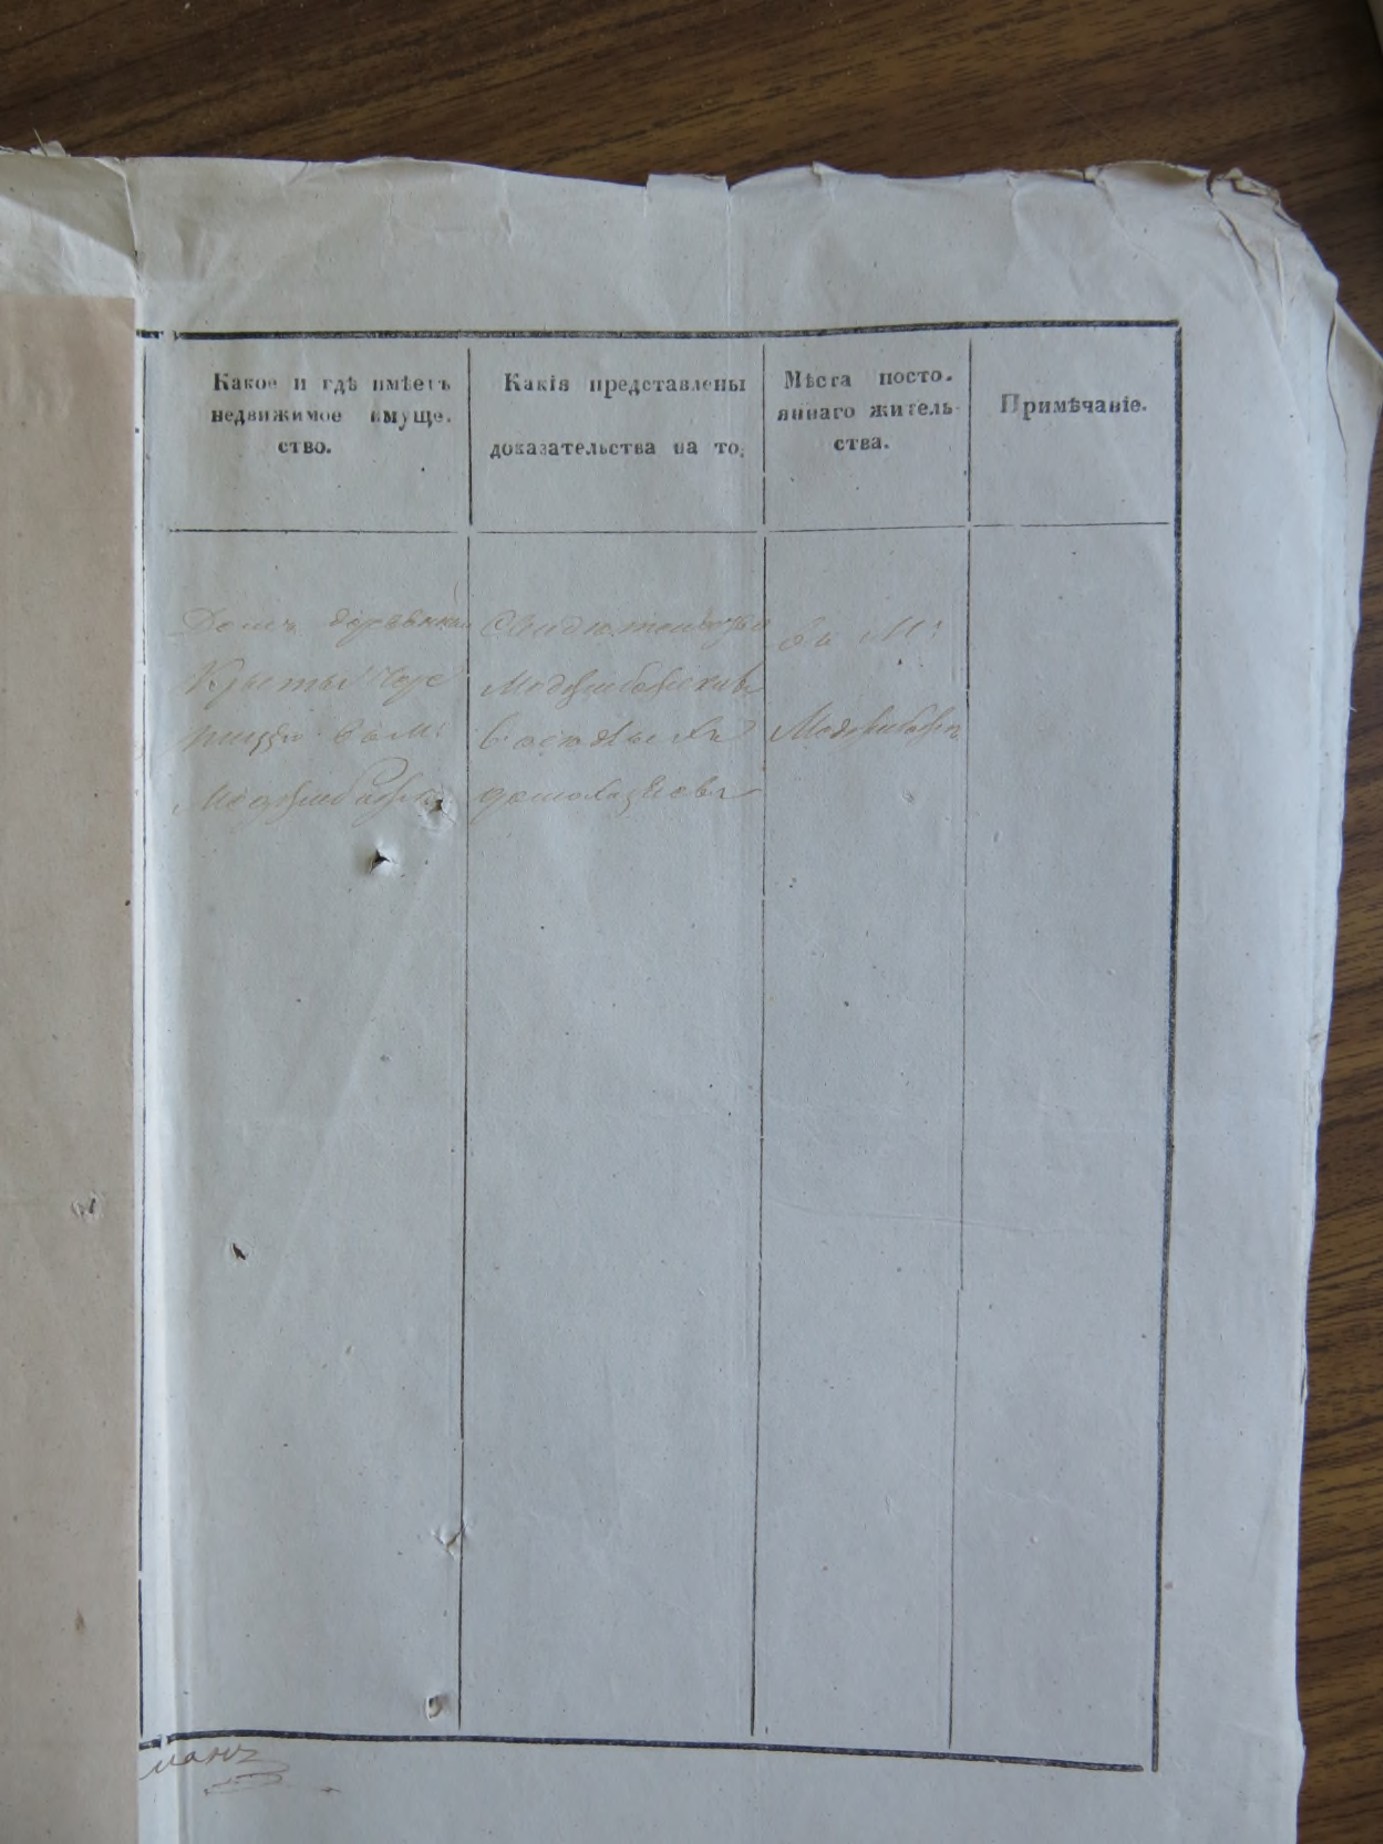 Какое и гдѣ имѣетъ
недвижимое имуще.
ство.
Какія представлены
доказательства на то.
Мѣста посто.
яннаго житель-
ства.
Примѣчаніе.
Домъ деревянный
Крытый Чере
пицею въ М:
Меджибожѣ
Свидѣтельство
Меджибожскихъ
домохазяевъ
въ М:
Меджибожѣ
манъ